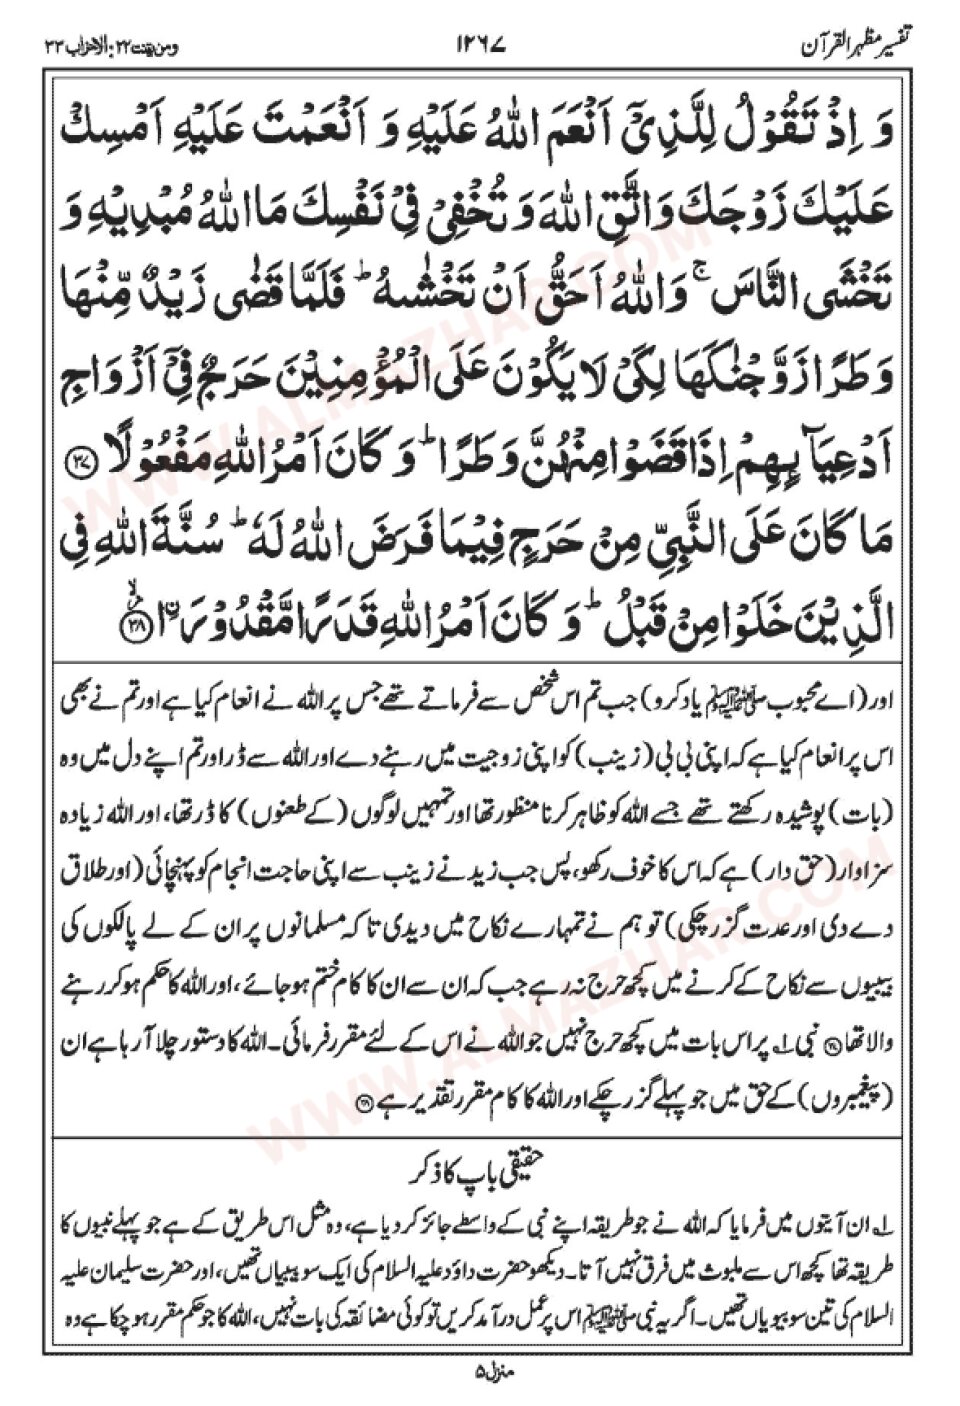 تفسیر مظہر القرآن ۱۲۶۷ ومن یقنت ۲۲: الاحزاب ۳۳
وَ اِذْ تَقُوْلُ لِلَّذِیْۤ اَنْعَمَ اللّٰهُ عَلَیْهِ وَ اَنْعَمْتَ عَلَیْهِ اَمْسِكْ
عَلَیْكَ زَوْجَكَ وَاتَّقِ اللّٰهَ وَ تُخْفِیْ فِیْ نَفْسِكَ مَا اللّٰهُ مُبْدِیْهِ وَ
تَخْشَی النَّاسَ ۚ وَاللّٰهُ اَحَقُّ اَنْ تَخْشٰىهُ ؕ فَلَمَّا قَضٰی زَیْدٌ مِّنْهَا
وَطَرًا زَوَّجْنٰكَهَا لِكَیْ لَا یَكُوْنَ عَلَی الْمُؤْمِنِیْنَ حَرَجٌ فِیْۤ اَزْوَاجِ
اَدْعِیَآىِٕهِمْ اِذَا قَضَوْا مِنْهُنَّ وَطَرًا ؕ وَ كَانَ اَمْرُ اللّٰهِ مَفْعُوْلًا ﴿۳۷﴾
مَا كَانَ عَلَی النَّبِیِّ مِنْ حَرَجٍ فِیْمَا فَرَضَ اللّٰهُ لَهٗ ؕ سُنَّةَ اللّٰهِ فِی
الَّذِیْنَ خَلَوْا مِنْ قَبْلُ ؕ وَ كَانَ اَمْرُ اللّٰهِ قَدَرًا مَّقْدُوْرَا ۙ﴿۳۸﴾
اور (اے محبوب ﷺ یاد کرو) جب تم اس شخص سے فرماتے تھے جس پر اللہ نے انعام کیا ہے اور تم نے بھی
اس پر انعام کیا ہے کہ اپنی بی بی (زینب) کو اپنی زوجیت میں رہنے دے اور اللہ سے ڈر اور تم اپنے دل میں وہ
(بات) پوشیدہ رکھتے تھے جسے اللہ کو ظاہر کرنا منظور تھا اور تمہیں لوگوں (کے طعنوں) کا ڈر تھا، اور اللہ زیادہ
سزاوار (حق دار) ہے کہ اس کا خوف رکھو، پس جب زید نے زینب سے اپنی حاجت انجام کو پہنچائی (اور طلاق
دے دی اور عدت گزر چکی) تو ہم نے تمہارے نکاح میں دیدی تا کہ مسلمانوں پر ان کے لے پالکوں کی
بیبیوں سے نکاح کے کرنے میں کچھ حرج نہ رہے جب کہ ان سے ان کا کام ختم ہو جائے، اور اللہ کا حکم ہو کر رہنے
والا تھا ﴿۳۷﴾ نبی ۱؎ پر اس بات میں کچھ حرج نہیں جو اللہ نے اس کے لئے مقرر فرمائی۔ اللہ کا دستور چلا آ رہا ہے ان
(پیغمبروں) کے حق میں جو پہلے گزر چکے اور اللہ کا کام مقرر تقدیر ہے ﴿۳۸﴾
حقیقی باپ کا ذکر
۱؎ ان آیتوں میں فرمایا کہ اللہ نے جو طریقہ اپنے نبی کے واسطے جائز کر دیا ہے، وہ مثل اس طریق کے ہے جو پہلے نبیوں کا
طریقہ تھا کچھ اس سے ملبوث میں فرق نہیں آتا۔ دیکھو حضرت داؤد علیہ السلام کی ایک سو بیبیاں تھیں، اور حضرت سلیمان علیہ
السلام کی تین سو بیویاں تھیں۔ اگر یہ نبی ﷺ اس پر عمل درآمد کریں تو کوئی مضائقہ کی بات نہیں، اللہ کا جو حکم مقرر ہو چکا ہے وہ
منزل ۵
WWW.ALMAZHAR.COM
WWW.ALMAZHAR.COM